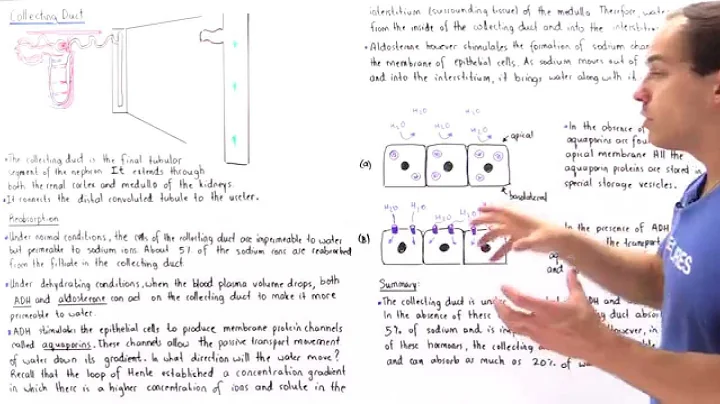 Collecting Duct
• The collecting duct is the final tubular
segment of the nephron It extends through
both the renal cortex and medulla of the kidneys.
• It connects the distal convoluted tubule to the ureter.
Reabsorption
• Under normal conditions, the cells of the collecting duct are impermeable to water
but permeable to sodium ions. About 5% of the sodium ions are reabsorbed
from the filtrate in the collecting duct.
• Under dehydrating conditions, when the blood plasma volume drops, both
ADH and aldosterone can act on the collecting duct to make it more
permeable to water.
• ADH stimulates the epithelial cells to produce membrane protein channels
called aquaporins. These channels allow the passive transport movement
of water down its gradient. In what direction will the water move?
Recall that the loop of Henle established a concentration gradient
in which there is a higher concentration of ions and solute in the
interstitium (surrounding tissue) of the medulla. Therefore, water
from the inside of the collecting duct and into the
• Aldosterone however stimulates the formation of sodium
the membrane of epithelial cells. As sodium moves out of
and into the interstitium, it brings water along with it
H2O H2O H2O
H2O H2O
apical
(a)
basolateral
• In the absence of
aquaporins are
apical membrane All the
aquaporin proteins are stored in
special storage vesicles.
H2O H2O H2O H2O
(B)
In the presence of ADH
the transport
and
Summary:
• The collecting duct is ADH and
In the absence of these duct
5% of sodium and is However, in
of these hormones, the collecting
and can absorb as much as 20% of